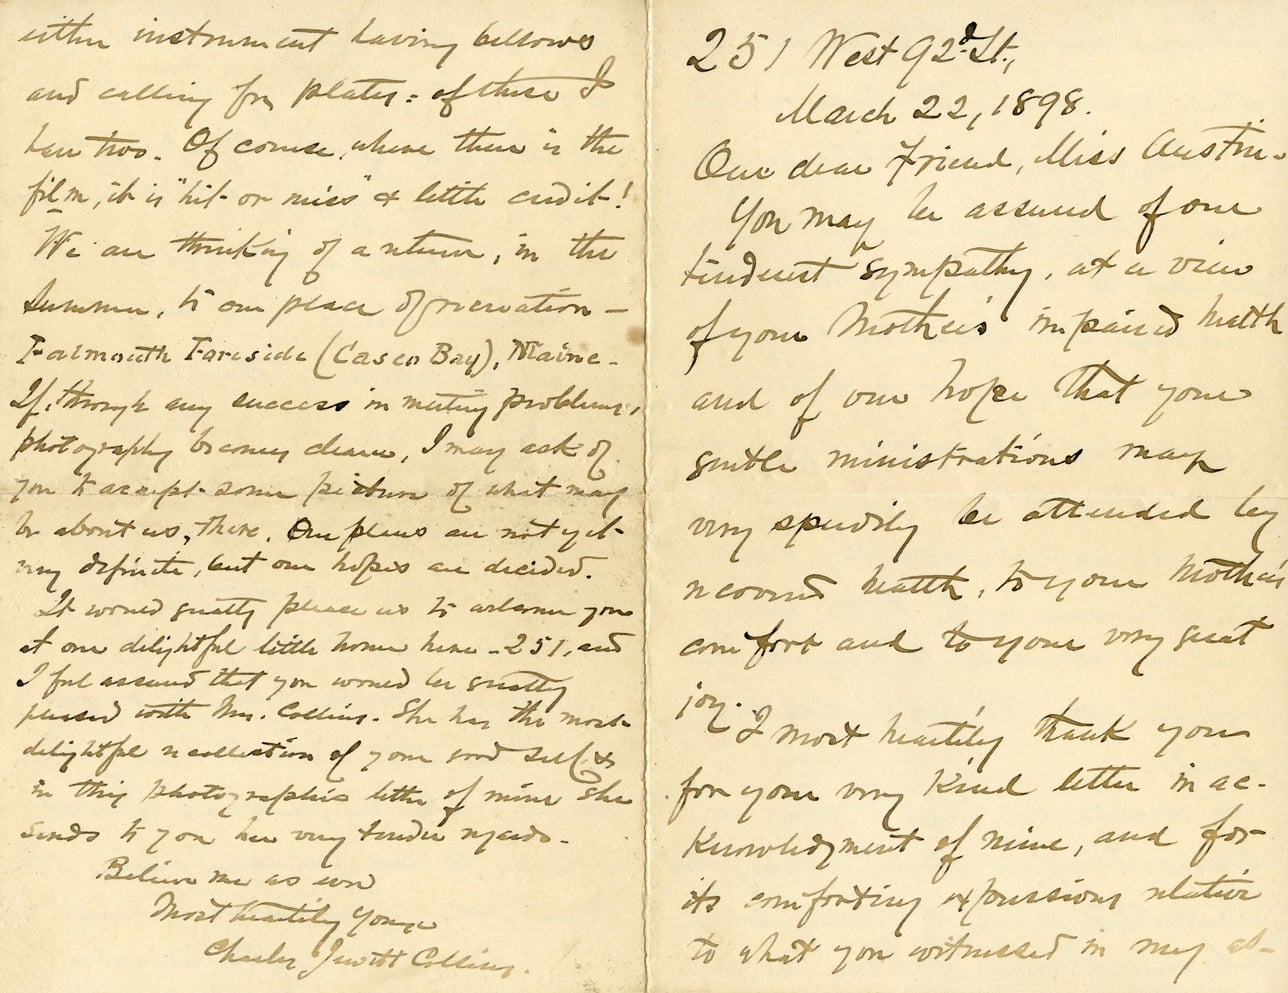 251 West 92d St.,
March 22, 1898.
Our dear Friend, Miss Austin.
You may be assured of our
tenderest sympathy, at a view
of your Mother's impaired health
and of our hope that your
gentle ministrations may
very speedily be attended by
recovered health, to your Mother's
comfort and to your very great
joy.
I most heartily thank you
for your very kind letter in ac-
knowledgment of mine, and for
its comforting expressions relative
to what you witnessed in my ab-
either instrument having bellows
and calling for plates: of these I
have two. Of course, where there is the
film, it is "hit or miss" & little credit!
We are thinking of a return, in the
Summer, to our place of recreation –
Falmouth Foreside (Casco Bay), Maine.
If, through any success in meeting problems,
photography becomes dearer, I may ask of
you to accept some picture of what may
be about us, there. Our plans are not yet
very definite, but our hopes are decided.
It would greatly please us to welcome you
at our delightful little home here – 251, and
I feel assured that you would be greatly
pleased with Mrs. Collins. She has the most
delightful recollection of your good self &
in this photographic letter of mine she
sends to you her very tender regards.
Believe me as ever
Most heartily Yours
Charles Jewett Collins.